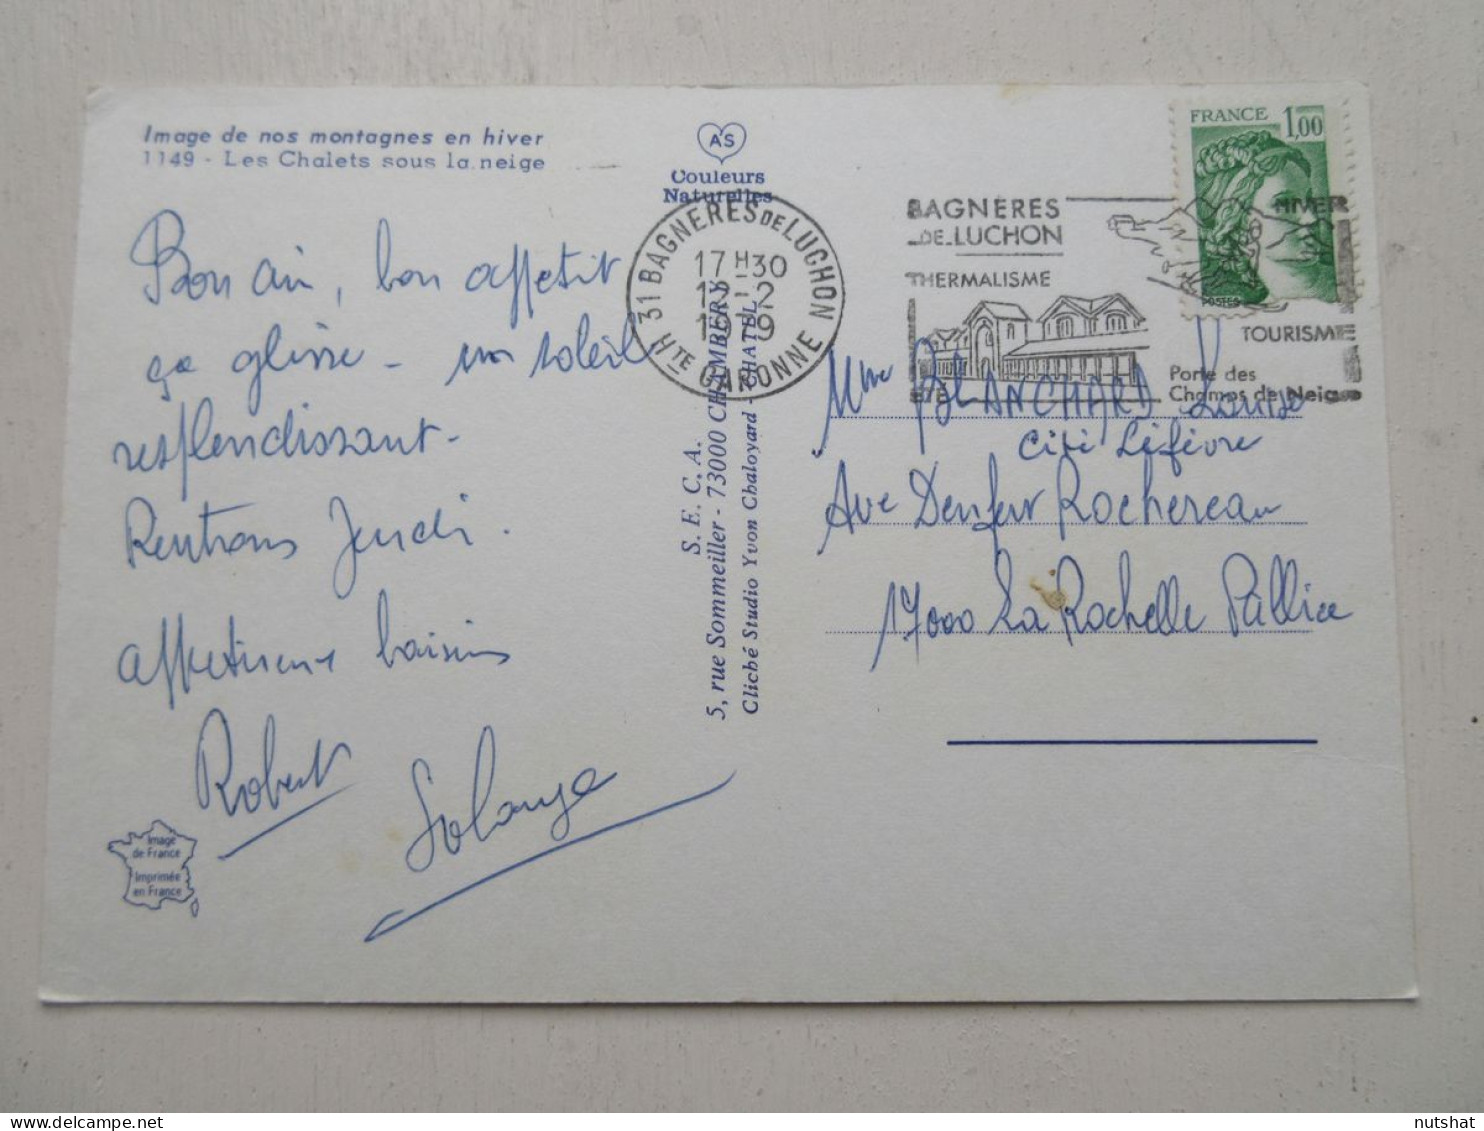 Image de nos montagnes en hiver
1149 - Les Chalets sous la neige
AS
Couleurs
Naturelles
Bon air, bon appétit
ça glisse - un soleil
resplendissant.
Rentrons Jeudi.
affectueux baisers
Robert
Solange
Image
de France
Imprimée
en France
S. E. C. A.
5, rue Sommeiller - 73000 CHAMBERY
Cliché Studio Yvon Chaloyard - CHATEL
31 BAGNERES DE LUCHON
17 H 30
12-2
1979
HTE GARONNE
BAGNERES
DE LUCHON
THERMALISME
HIVER
ETE
TOURISME
Porte des
Champs de Neige
FRANCE 1,00
POSTES
Mme BLANCHARD Louise
Cité Lefèvre
Ave Denfert Rochereau
17000 La Rochelle Pallice
nutshat